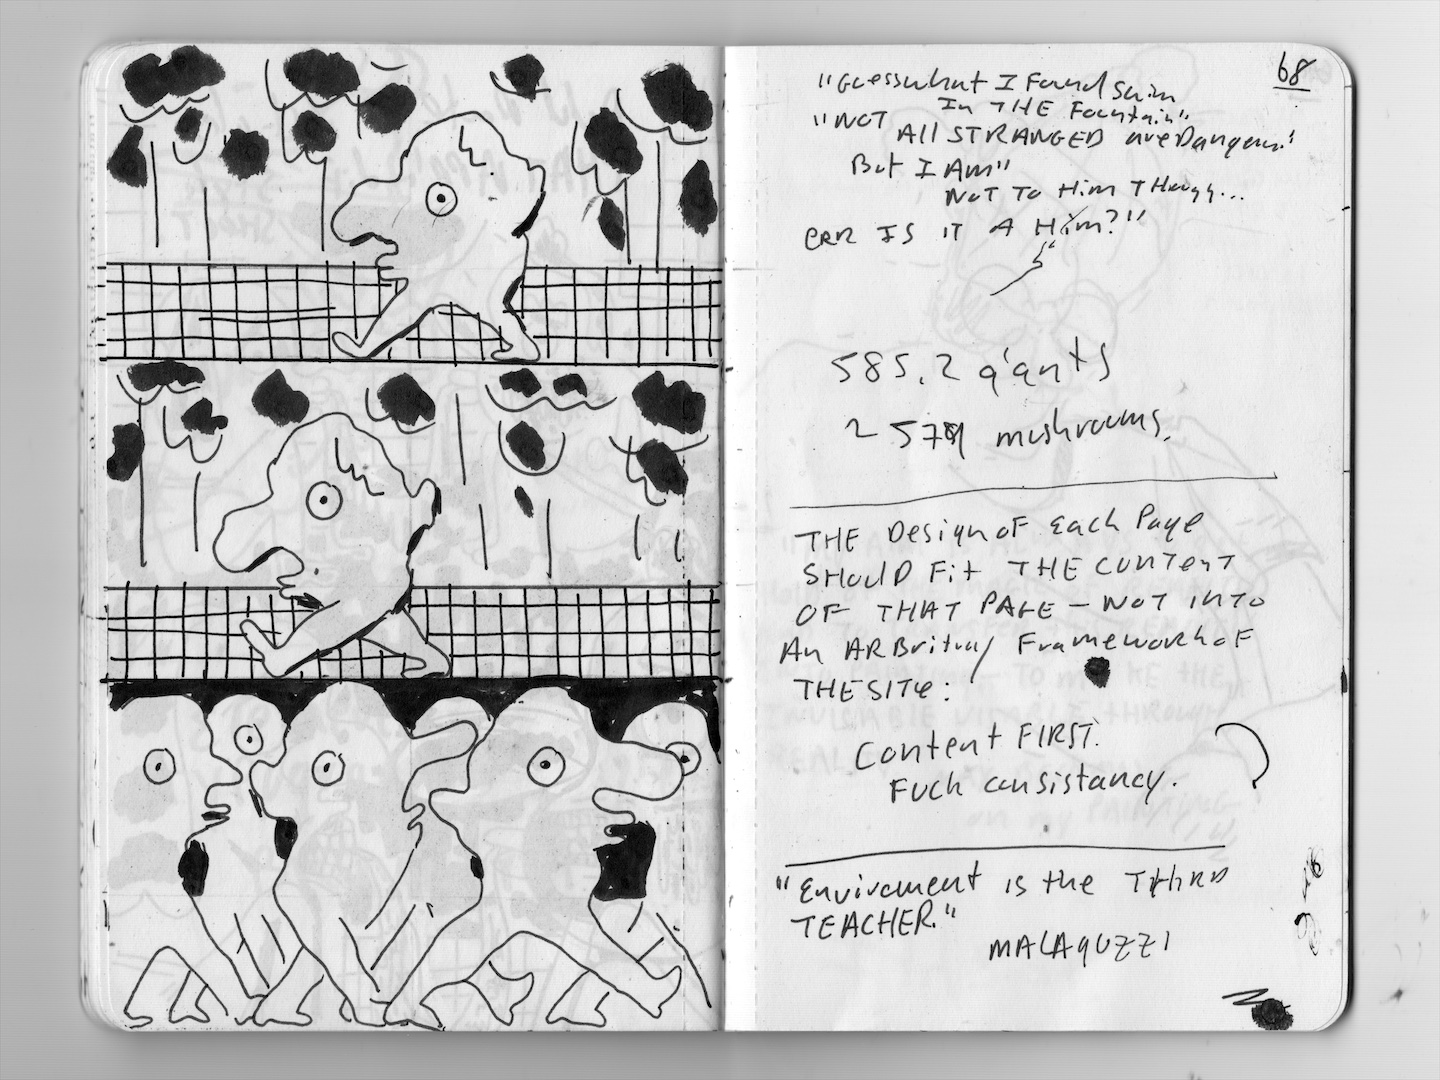 68
"Guesswhat I Found Swim
In THE Fountain"
"NOT All STRANGED are Dangerous!
But I Am"
NOT TO Him THough...
ERR IS IT A Him?"
585.2 giants
2 579 mushrooms.
THE Design oF each Page
SHOulD Fit THE CONTENT
OF THAT PAGE — NOT INTO
An ARBritray Framework oF
THE SITE:
Content FIRST.
Fuck consistancy.
"Enviroment is the THIRD
TEACHER."
MALAGUZZI